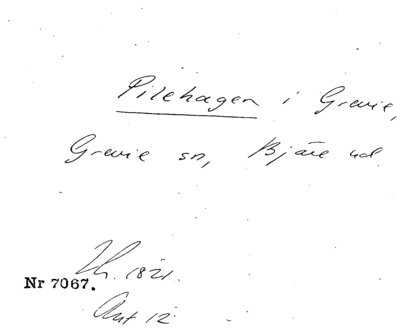 Pilehagen i Grevie,
Grevie sn, Bjäre hd.
Lh. 1821.
Nr 7067.
Akt 12